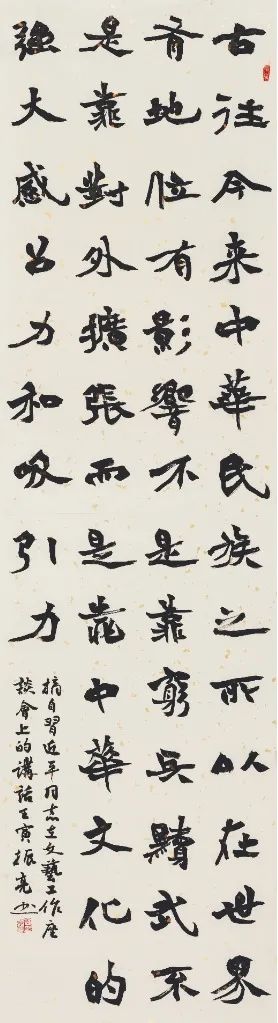 古往今来中華民族之所以在世界
有地位有影響不是靠窮兵黷武不
是靠對外擴張而是靠中華文化的
強大感召力和吸引力
摘自習近平同志在文藝工作座
談會上的講話壬寅振亮书